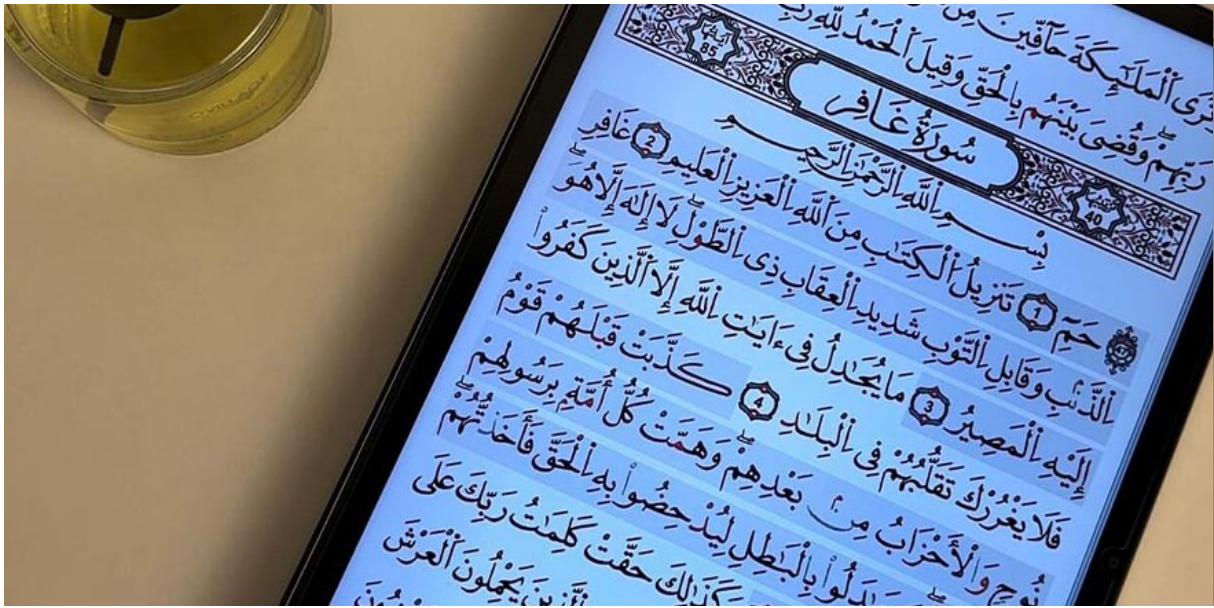 تَرَى ٱلْمَلَٰٓئِكَةَ حَآفِّينَ مِنْ
رَبِّهِمْ ۖ وَقُضِىَ بَيْنَهُم بِٱلْحَقِّ وَقِيلَ ٱلْحَمْدُ لِلَّهِ رَبِّ
40 سُورَةُ غَافِرٍ 85
بِسْمِ ٱللَّهِ ٱلرَّحْمَٰنِ ٱلرَّحِيمِ
حمٓ 1 تَنزِيلُ ٱلْكِتَٰبِ مِنَ ٱللَّهِ ٱلْعَزِيزِ ٱلْعَلِيمِ 2 غَافِرِ
ٱلذَّنۢبِ وَقَابِلِ ٱلتَّوْبِ شَدِيدِ ٱلْعِقَابِ ذِى ٱلطَّوْلِ ۖ لَآ إِلَٰهَ إِلَّا هُوَ ۖ
إِلَيْهِ ٱلْمَصِيرُ 3 مَا يُجَٰدِلُ فِىٓ ءَايَٰتِ ٱللَّهِ إِلَّا ٱلَّذِينَ كَفَرُوا۟
فَلَا يَغْرُرْكَ تَقَلُّبُهُمْ فِى ٱلْبِلَٰدِ 4 كَذَّبَتْ قَبْلَهُمْ قَوْمُ
نُوحٍ وَٱلْأَحْزَابُ مِنۢ بَعْدِهِمْ ۖ وَهَمَّتْ كُلُّ أُمَّةٍۭ بِرَسُولِهِمْ
بِٱلْبَٰطِلِ لِيُدْحِضُوا۟ بِهِ ٱلْحَقَّ فَأَخَذْتُهُمْ
وَكَذَٰلِكَ حَقَّتْ كَلِمَتُ رَبِّكَ عَلَى
ٱلَّذِينَ يَحْمِلُونَ ٱلْعَرْشَ